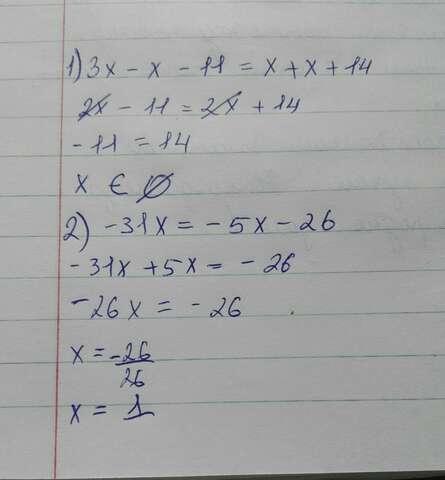 1) 3x - x - 11 = x + x + 14
2x - 11 = 2x + 14
- 11 = 14
x ∈ ∅
2) -31x = -5x - 26
-31x + 5x = -26
-26x = -26
x = -26/26
x = 1